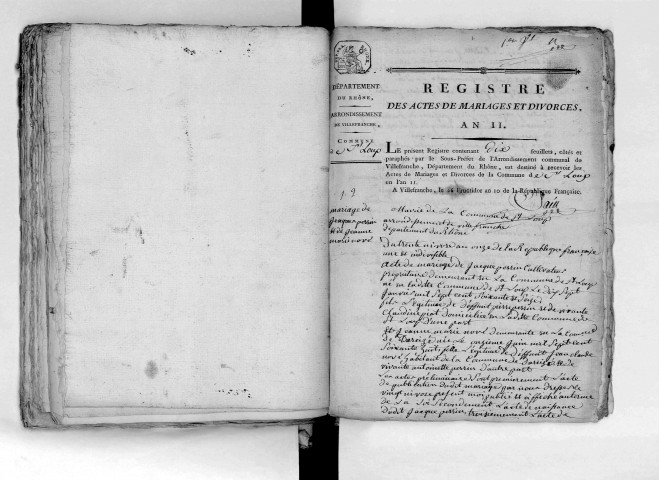 DÉPARTEMENT
DU RHÔNE,
ARRONDISSEMENT
DE VILLEFRANCHE,
COMMUNE
de St Loup
REGISTRE
DES ACTES DE MARIAGES ET DIVORCES.
AN II.
LE présent Registre contenant dix feuillets, côtés et
paraphés par le Sous-Préfet de l'Arrondissement communal de
Villefranche, Département du Rhône, est destiné à recevoir les
Actes de Mariages et Divorces de la Commune de St Loup
en l'an 11.
A Villefranche, le fructidor an 10 de la République Française.
mariage de
jacque perrin
et de jeanne
marie
Mairie de La Commune de St Loup
arrondissement de villefranche
departement du Rhône
Du trente nivose an onze de la Republique française
une et indivisible
acte de mariage de jacque perrin Cultivateur
propriétaire demeurant en La Commune de St Loup
né en ladite Commune de St Loup Le dix Sept
janvier mil Sept cent Soixante et
fils Legitime de deffunt pierre perrin et de vivante
Claudine domiciliée en Ladite Commune de
St Loup d'une part
et jeanne marie demeurante en La Commune
de née Le onzieme juin mil Sept Cent
Soixante huit fille Legitime de deffunt jean claude
habitant de la Commune de et de
vivante antoinette perrin d'autre part
Les actes preliminaires Sont premierement L'acte
de publication dudit mariage par nous dressé Le
vingt nivose present mois publié et affiché au terme
de La Loi Secondement L'acte de naissance
dudit jacque perrin, troisiemement L'acte de